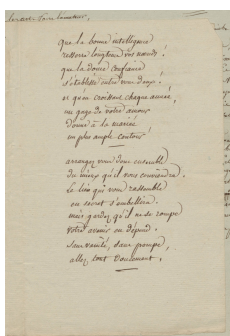 que la bonne intelligence
resserre longtems vos nœuds!
que la douce confiance
s'établisse entre vous deux!
et qu'en croissant chaque année,
un gage de votre amour
donne à la mariée
un plus ample contour!
arrangez vous donc ensemble
du mieux qu'il vous conviendra.
Le lien qui vous rassemble
ou s'embellira.
mais gardez qu'il ne se rompe
votre avenir en dépend.
sans vanité, sans pompe,
allez, tout doucement.